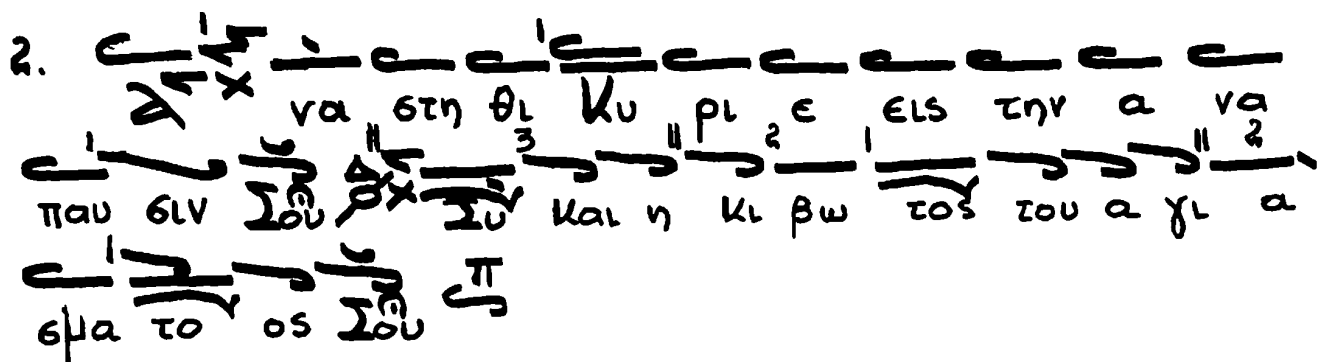 2. Α να στη θι Κυ ρι ε εις την α να
παυ σιν Σου Συ και η κι βω τος του α γι α
σμα το ος Σου